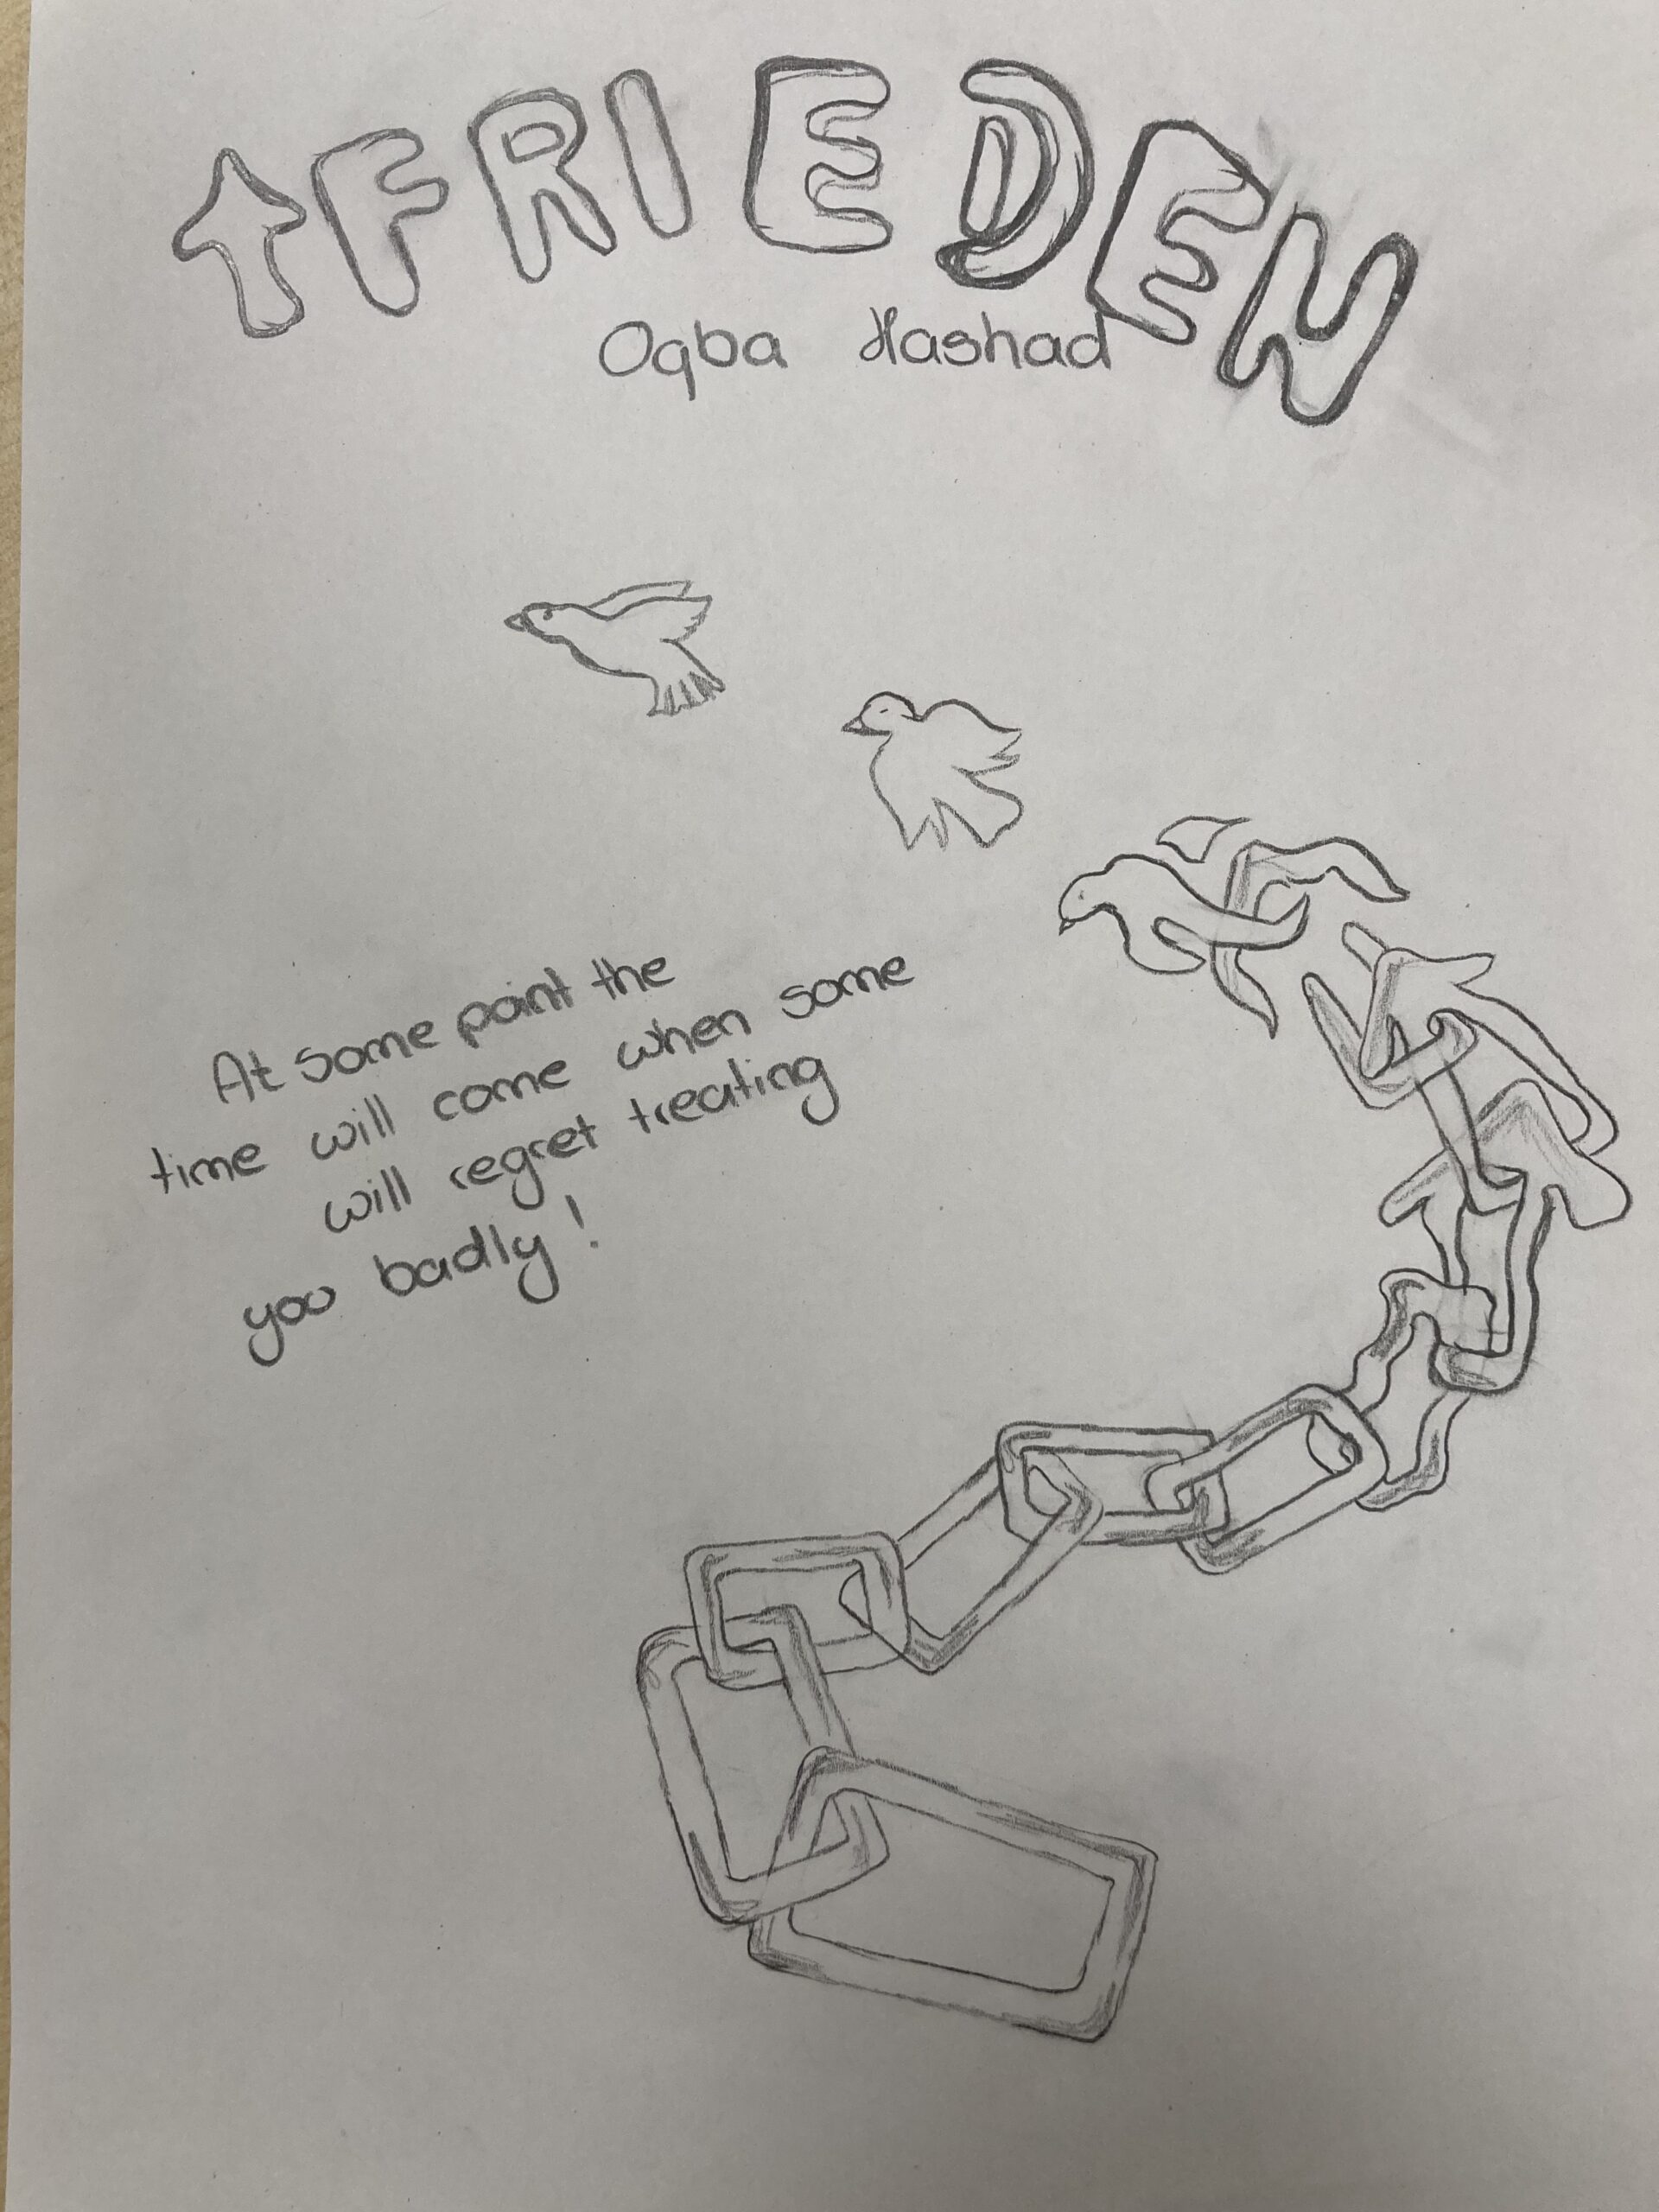 tFRIEDEN
Oqba Hashad
At some point the
time will come when some
will regret treating
you badly!